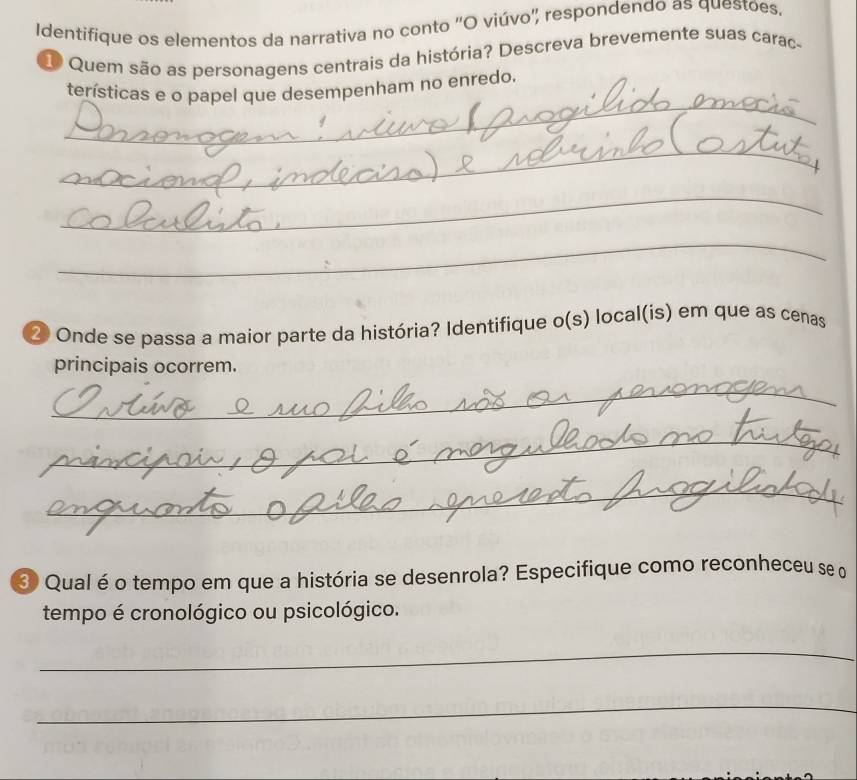 Identifique os elementos da narrativa no conto "O viúvo", respondendo às questões.
1 Quem são as personagens centrais da história? Descreva brevemente suas carac-
terísticas e o papel que desempenham no enredo.
Personagem: viuvo (fragilido emocio
nocional, indeciso) e sobrinho (astuto,
calculista.
2 Onde se passa a maior parte da história? Identifique o(s) local(is) em que as cenas
principais ocorrem.
O viúvo e suo filho são os personagem
principais, o pai é mergulhado no tristeza,
enquanto o filho representa fragilidade
3 Qual é o tempo em que a história se desenrola? Especifique como reconheceu se o
tempo é cronológico ou psicológico.